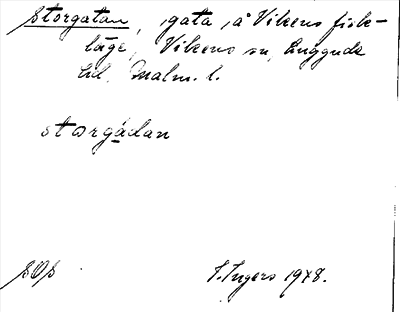 Storgatan, gata å Vikens fisk-
läge, Vikens sn, Luggude
hd, Malm. l.
storgådan
SOS
I. Ingers 1948.